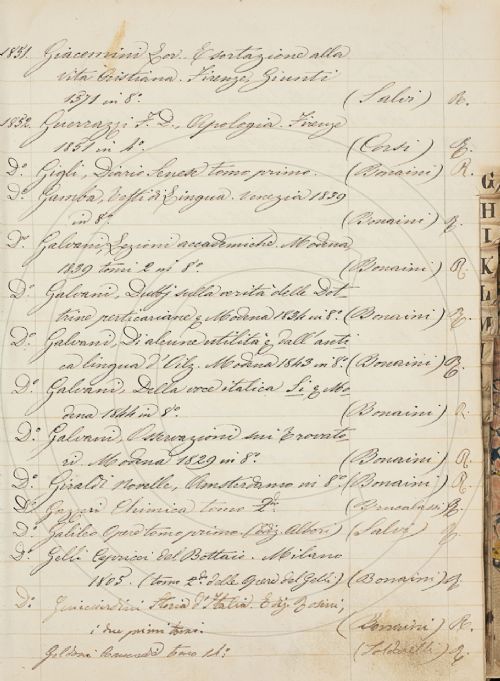 1851. Giacomini Lor. Esortazione alla
vita Cristiana. Firenze, Giunti
1571 in 8.° (Salvi) R.
1852. Guerrazzi F. D., Apologia. Firenze
1851 in 4.° (Corsi) R.
D.° Gigli, Diario Senese tomo primo. (Bonaini) R.
D.° Gamba, Testi di Lingua. Venezia 1839
in 8.° (Bonaini) R.
D.° Galvani, Lezioni accademiche. Modena
1839 tomi 2 in 8.° (Bonaini) R.
D.° Galvani, Dubbj sulla verità delle Dot-
trine perticariane, Modena 1834 in 8.° (Bonaini) R.
D.° Galvani, Di alcune utilità dall'anti-
ca lingua d'Oil, Modena 1843 in 8.° (Bonaini) R.
D.° Galvani, Della voce italica Si, Mo-
dena 1844 in 8.° (Bonaini) R.
D.° Galvani, Osservazioni sui Trovato-
ri. Modena 1829 in 8.° (Bonaini) R.
D.° Giraldi Novelle, Amsterdamo in 8.° (Bonaini) R.
D.° Gazzeri Chimica tomo 2.° (Brucalassi) R.
D.° Galileo Opere tomo primo (ediz. Alberi) (Salvi) R.
D.° Gelli Capricci del Bottaio. Milano
1805. (tomo 2.do delle Opere del Gelli) (Bonaini) R.
D.° Guicciardini Storia d'Italia. Ediz. Rosini,
i due primi tomi. (Bonaini) R.
Goldoni Commedie tomo 14.° R.
G
H
I
K
L
M